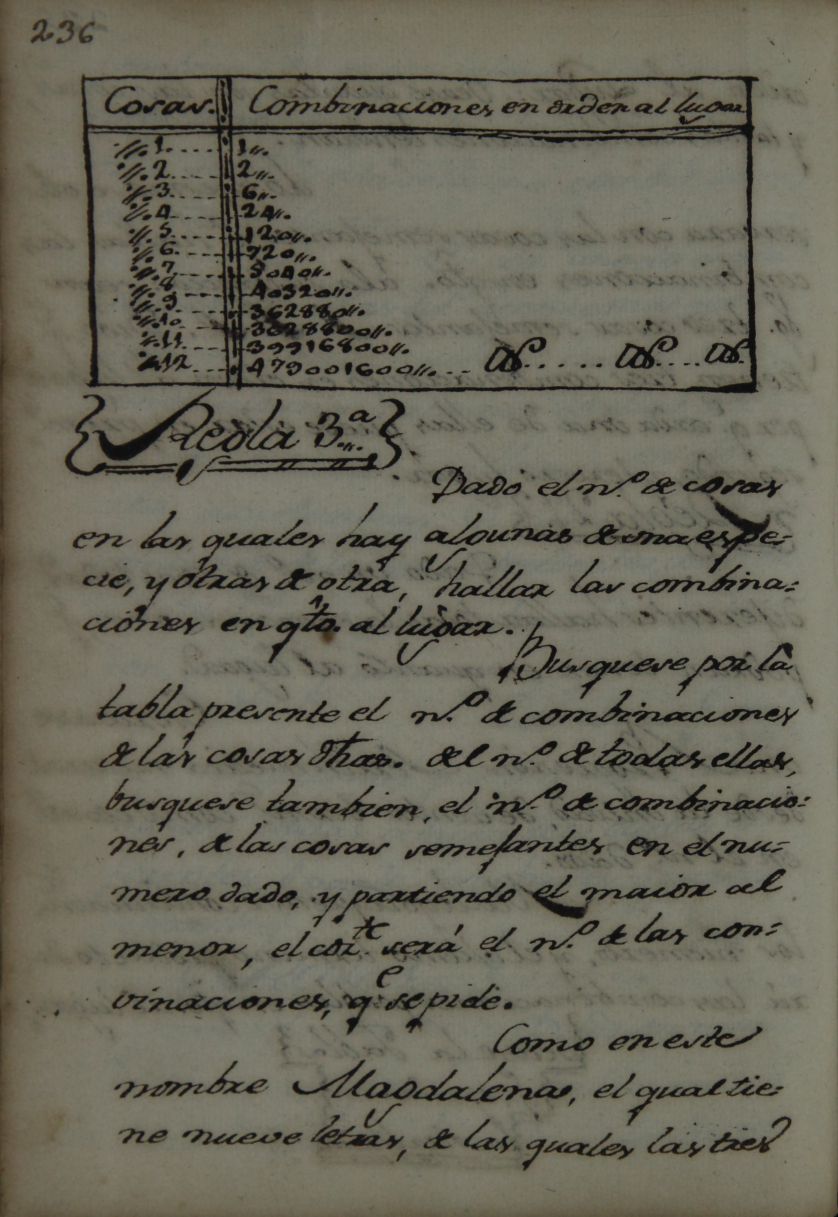 236
Cosas. Combinaciones en orden al lugar
1. 1
2 2
3 6
4 24
5 120
6 720
7 5040
8 40320
9 362880
10 3628800
11 39916800
12 479001600
Regla 3.ª
Dado el n.º de cosas
en las quales hay algunas de una espe-
cie, y otras de otra, hallar las combina=
ciones en q.to al lugar.
Busquese por la
tabla presente el n.º de combinaciones
de las cosas dhas. del n.º de todas ellas,
busquese tambien, el n.º de combinacio=
nes, de las cosas semejantes en el nu=
mero dado, y partiendo el maior al
menor, el coz.te será el n.º de las con=
vinaciones, q.e se pide.
Como en este
nombre Magdalena, el qual tie=
ne nueve letras, de las quales las tres